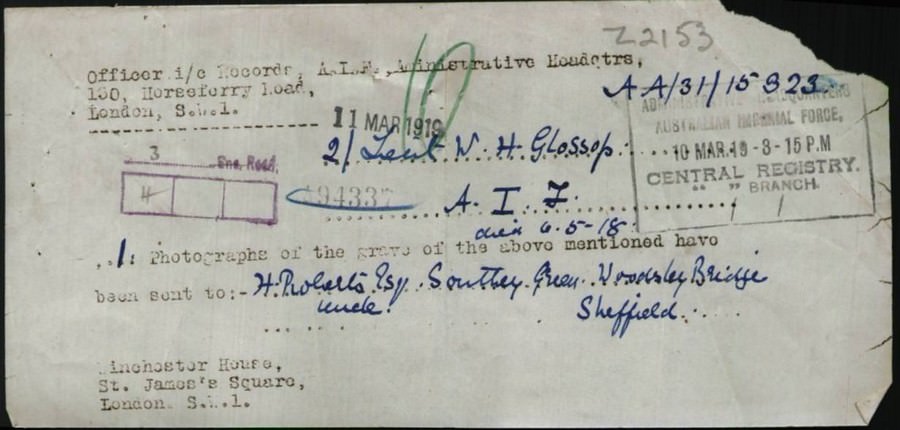 Z2153
Officer i/c Records, A.I.F., Aministrative Headqtrs,
130, Horseferry Road,
London, S.W.1.
AA/31/15923
ADMINISTRATIVE HEADQUARTERS
AUSTRALIAN IMPERIAL FORCE,
10 MAR.19 -3-15 P.M
CENTRAL REGISTRY.
" " BRANCH.
11 MAR 1919
3 Enc. Recd.
4
2/ Lieut W. H Glossop
A. I. F.
died 6.5.18
1: Photographs of the grave of the above mentioned have
been sent to:- H. Roberts Esq. Southey Green. Wadsley Bridge
uncle. Sheffield
Winchester House,
St. James's Square,
London. S.W.1.